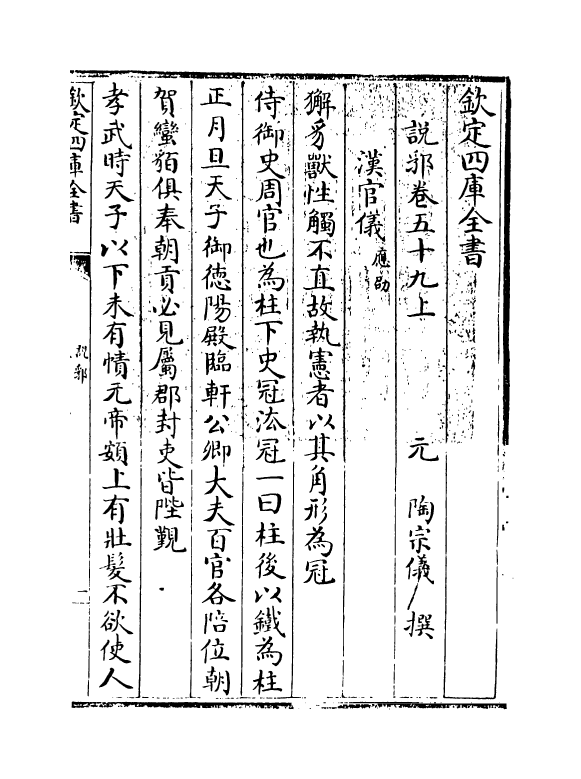 欽定四庫全書
說郛卷五十九上 元 陶宗儀 撰
漢官儀 應劭
獬豸獸性觸不直故執憲者以其角形為冠
侍御史周官也為柱下史冠法冠一曰柱後以鐵為柱
正月旦天子御德陽殿臨軒公卿大夫百官各陪位朝
賀蠻貊俱奉朝貢必見屬郡封吏皆陛覲
孝武時天子以下未有幘元帝頟上有壯髮不欲使人
欽定四庫全書
說郛